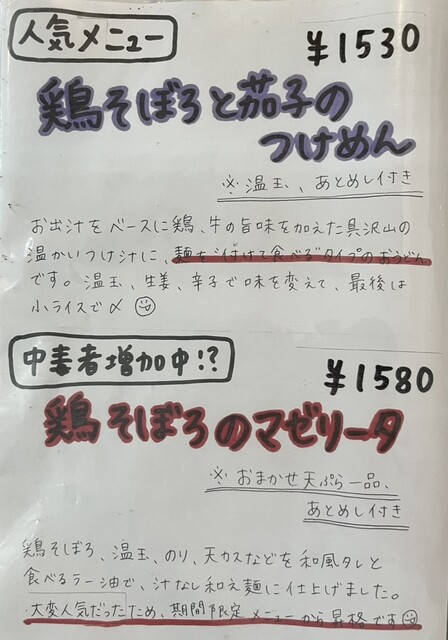 人気メニュー
¥1530
鶏そぼろと茄子の
つけめん
※温玉、あとめし付き
お出汁をベースに鶏、牛の旨味を加えた具沢山の
温かいつけ汁に、麺を付けて食べるタイプのおうどん
です。温玉、生姜、辛子で味を変えて、最後は
小ライスで〆
中毒者増加中!?
¥1580
鶏そぼろのマゼリータ
※おまかせ天ぷら一品、
あとめし付き
鶏そぼろ、温玉、のり、天カスなどを和風タレと
食べるラー油で、汁なし和え麺に仕上げました。
大変人気だったため、期間限定メニューから昇格です